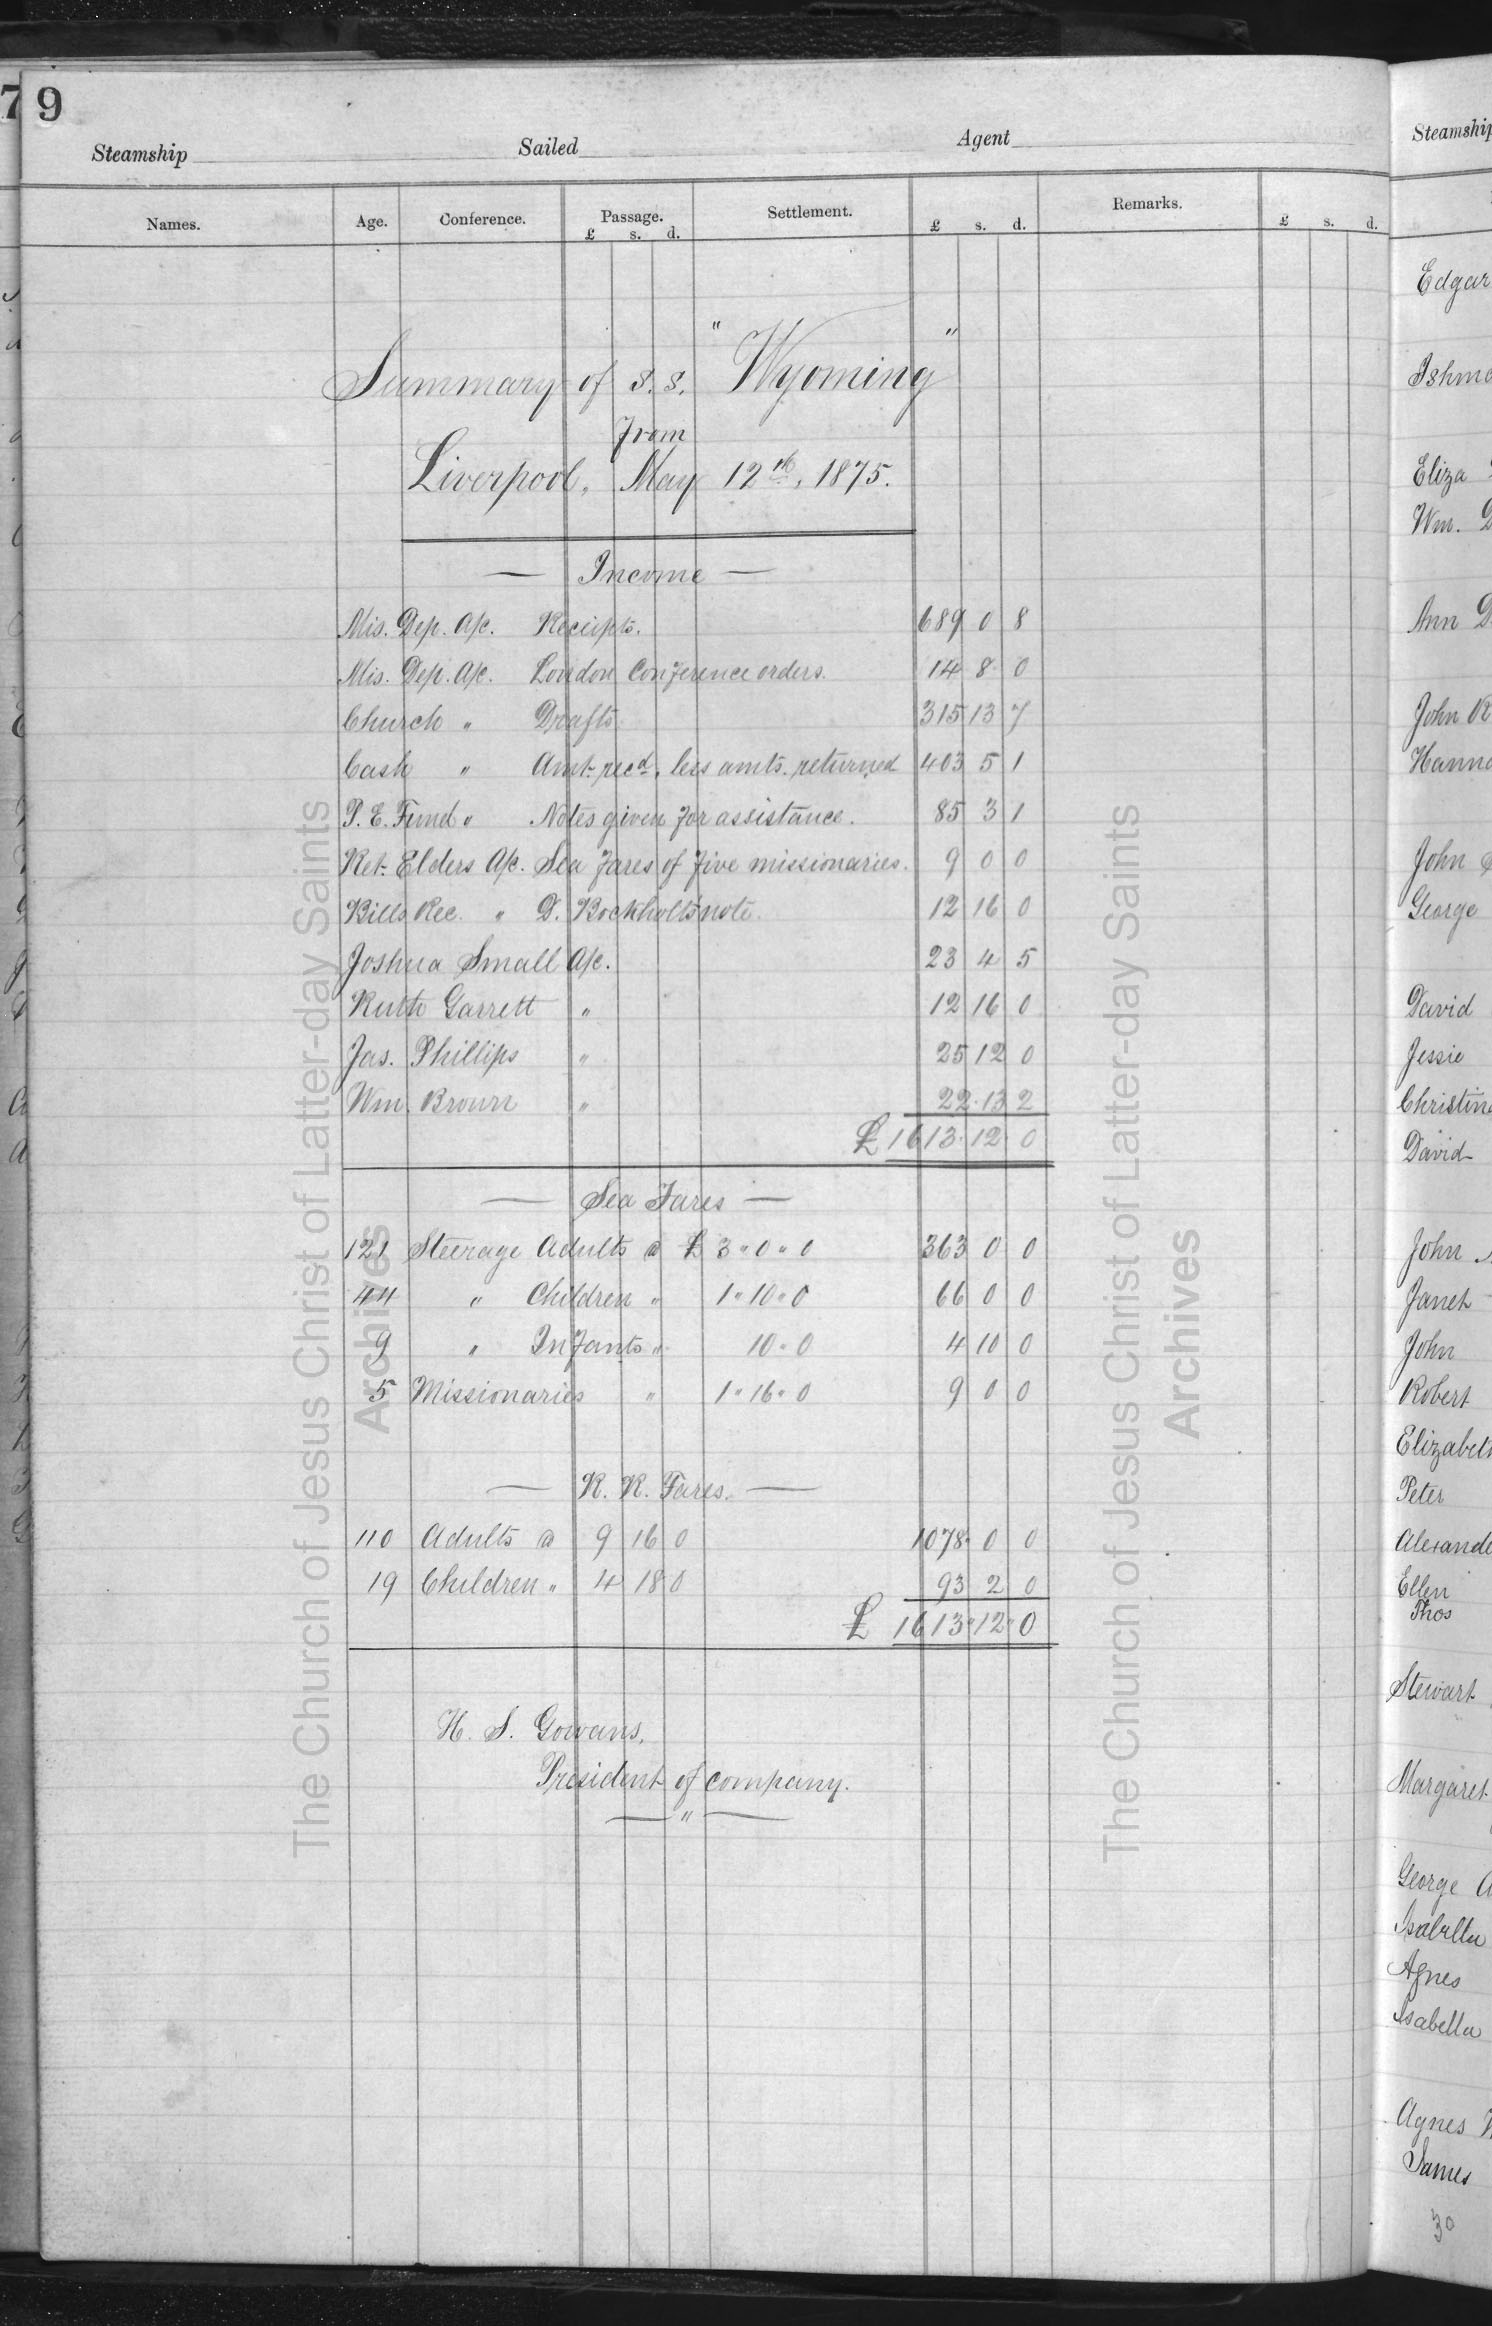 7 9
Steamship Sailed Agent
Names. Age. Conference. Passage. Settlement. Remarks.
£ s. d. £ s. d. £ s. d.
Summary of S. S. "Wyoming"
from
Liverpool, May 12th, 1875.
— Income —
Mis. Dep. A/c. Receipts. 689 0 8
Mis. Dep. A/c. London Conference orders. 14 8 0
Church " Drafts 315 13 7
Cash " Amt. recd, less amts. returned 403 5 1
P. E. Fund " Notes given for assistance. 85 3 1
Ret. Elders A/c. Sea fares of five missionaries. 9 0 0
Bills Rec. " D. Bockholts note. 12 16 0
Joshua Small A/c. 23 4 5
Ruth Garrett " 12 16 0
Jas. Phillips " 25 12 0
Wm. Brown " 22 13 2
£ 1613 12 0
— Sea Fares —
121 Steerage Adults @ £ 3 " 0 " 0 363 0 0
44 " Children " 1 " 10 " 0 66 0 0
9 " Infants " 10 " 0 4 10 0
5 Missionaries " 1 " 16 " 0 9 0 0
— R. R. Fares. —
110 Adults @ 9 16 0 1078 0 0
19 Children " 4 18 0 93 2 0
£ 1613 " 12 " 0
H. S. Gowans,
President of company.
— " —
The Church of Jesus Christ of Latter-day Saints
Archives
The Church of Jesus Christ of Latter-day Saints
Archives
Steamship
Edgar
Eliza
Wm.
Ann
John
John
George
David
Jessie
David
John
Janet
John
Robert
Peter
Ellen
Thos
Stewart
Margaret
George
Isabella
Agnes
Isabella
Agnes
James
30